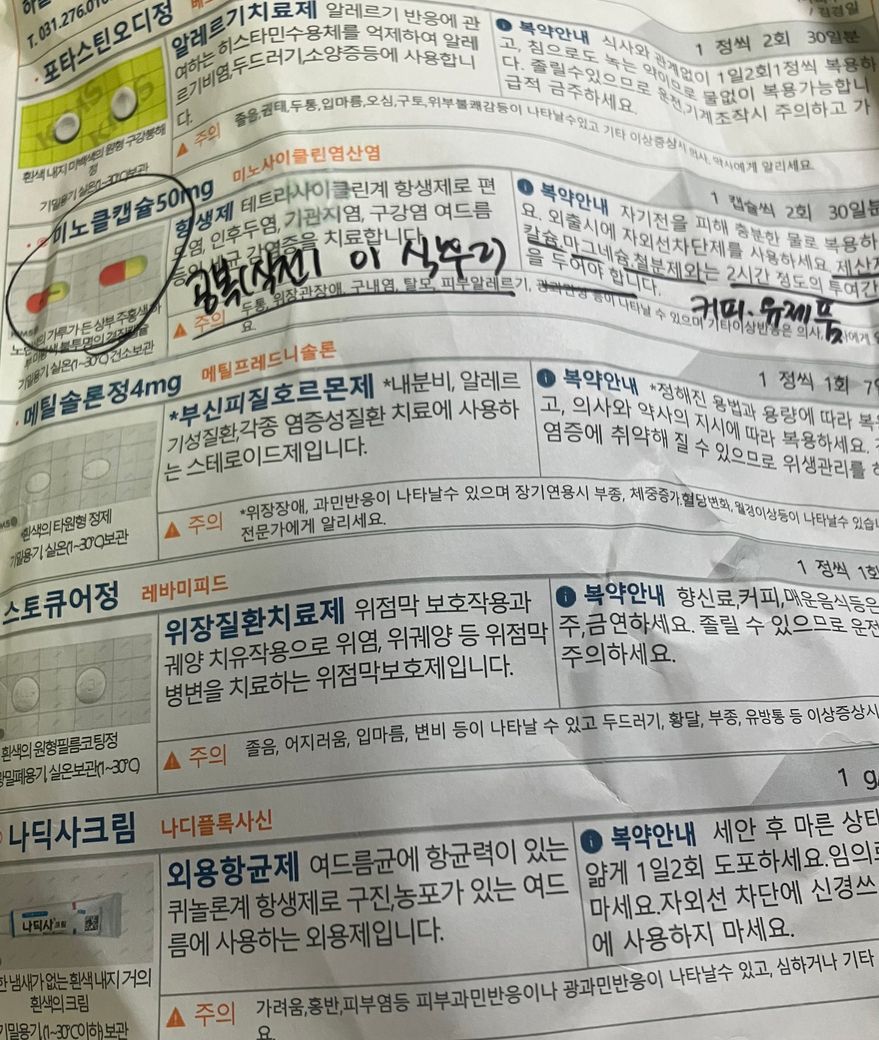 T. 031.276.01
포타스틴오디정
알레르기치료제 알레르기 반응에 관
여하는 히스타민수용체를 억제하여 알레
르기비염,두드러기,소양증등에 사용합니
다.
복약안내 식사와 관계없이 1일2회1정씩 복용하
고, 침으로도 녹는 약이므로 물없이 복용가능합니
다. 졸릴수있으므로 운전,기계조작시 주의하고 가
급적 금주하세요.
1 정씩 2회 30일분
주의 졸음,권태,두통,입마름,오심,구토,위부불쾌감등이 나타날수있고 기타 이상증상시 의사, 약사에게 알리세요.
흰색 내지 미백색의 원형 구강붕해
정
기밀용기 실온(1~30℃)보관
미노클캡슐50mg 미노사이클린염산염
항생제 테트라사이클린계 항생제로 편
도염, 인후두염, 기관지염, 구강염 여드름
등의 세균 감염증을 치료합니다.
복약안내 자기전을 피해 충분한 물로 복용하
요. 외출시에 자외선차단제를 사용하세요. 제산제
칼슘,마그네슘,철분제와는 2시간 정도의 투여간
을 두어야 합니다.
1 캡슐씩 2회 30일분
공복(식전) 이 식(우리)
커피. 유제품
주의 두통, 위장관장애, 구내염, 탈모, 피부알레르기, 광과민증 등이 나타날수 있으며 기타이상반응은 의사,
요.
기밀용기 실온(1~30℃) 건소보관
메틸솔론정4mg 메틸프레드니솔론
*부신피질호르몬제 *내분비, 알레르
기성질환,각종 염증성질환 치료에 사용하
는 스테로이드제입니다.
복약안내 *정해진 용법과 용량에 따라 복용
고, 의사와 약사의 지시에 따라 복용하세요.
염증에 취약해 질 수 있으므로 위생관리를
1 정씩 1회 7
주의 *위장장애, 과민반응이 나타날수 있으며 장기연용시 부종, 체중증가,혈당변화, 월경이상등이 나타날수 있습니
전문가에게 알리세요.
흰색의 타원형 정제
기밀용기, 실온(1~30℃)보관
스토큐어정 레바미피드
위장질환치료제 위점막 보호작용과
궤양 치유작용으로 위염, 위궤양 등 위점막
병변을 치료하는 위점막보호제입니다.
복약안내 향신료,커피,매운음식등은
주,금연하세요. 졸릴 수 있으므로 운전
주의하세요.
1 정씩 1회
주의 졸음, 어지러움, 입마름, 변비 등이 나타날 수 있고 두드러기, 황달, 부종, 유방통 등 이상증상시
흰색의 원형필름코팅정
기밀폐용기, 실온보관(1~30℃)
나딕사크림 나디플록사신
외용항균제 여드름균에 항균력이 있는
퀴놀론계 항생제로 구진,농포가 있는 여드
름에 사용하는 외용제입니다.
복약안내 세안 후 마른 상태
얇게 1일2회 도포하세요.임의로
마세요.자외선 차단에 신경쓰
에 사용하지 마세요.
1 g/
나딕사크림
주의 가려움,홍반,피부염등 피부과민반응이나 광과민반응이 나타날수 있고, 심하거나 기타
요.
한 냄새가 없는 흰색 내지 거의
흰색의 크림
기밀용기,(1~30℃이하) 보관